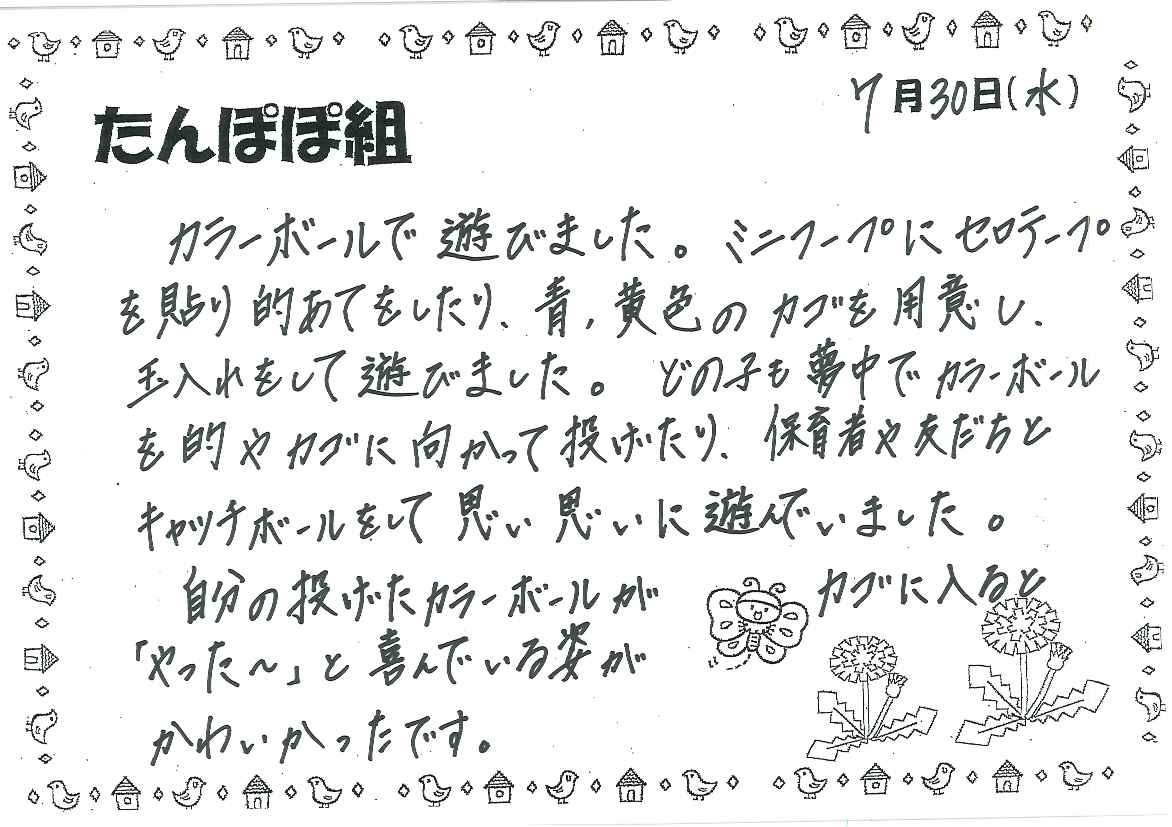 7月30日(水)
たんぽぽ組
カラーボールで遊びました。ミニフープにセロテープ
を貼り的あてをしたり、青、黄色のカゴを用意し、
玉入れをして遊びました。どの子も夢中でカラーボール
を的やカゴに向かって投げたり、保育者や友だちと
キャッチボールをして思い思いに遊んでいました。
自分の投げたカラーボールが カゴに入ると
「やった～」と喜んでいる姿が
かわいかったです。